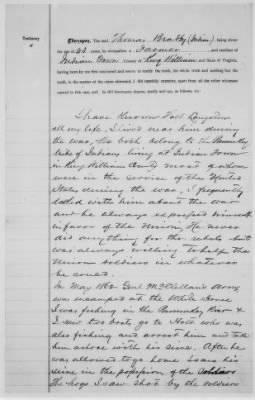 Testimony
of
Thereupon, The said Thomas Bradby (Indian) being about
years old, by occupation a Farmer and resident of
Indian Town County of King William and State of Virginia,
having been by me first cautioned and sworn to testify the truth, the whole truth and nothing but the
truth, in the matter of the claim aforesaid, I did carefully examine, apart from all the other witnesses
named in this case, and he did thereupon depose, testify and say, as follows, viz:
I have known Fost Langston
all my life. I lived near him during
the war. We both belong to the Pamunkey
tribe of Indians living at Indian Town
in King William Co. most of whom
were in the service of the United
States during the war. I frequently
talked with him about the war
and he always expressed himself
in favor of the Union. He never
did anything for the rebels but
was always willing to help the
Union soldiers in whatever
he could.
In May 1862 Genl McClellan's Army
was encamped at the White House
I was fishing in the Pamunkey River &
I saw two boats go to Fost who was
also fishing and arrest him and take
him ashore with his seine. After he
was allowed to go home I saw his
seine in the possession of the soldiers
The hogs I saw shot by the soldiers